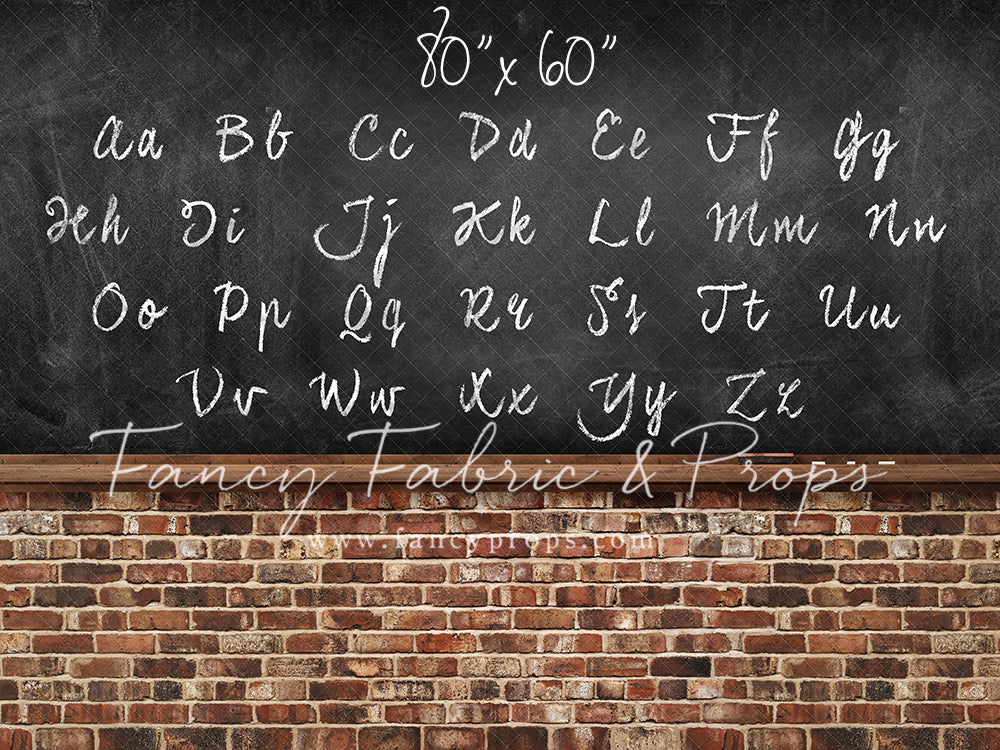 80" x 60"
Aa Bb Cc Dd Ee Ff Gg
Hh Ii Jj Kk Ll Mm Nn
Oo Pp Qq Rr Ss Tt Uu
Vv Ww Xx Yy Zz
Fancy Fabric & Props
www.fancyprops.com